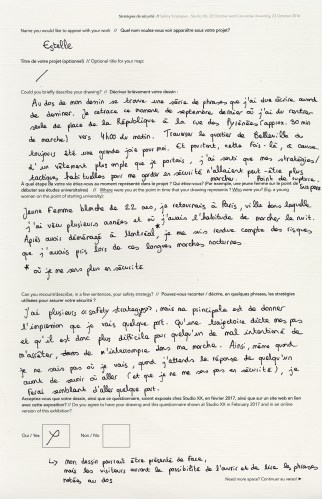 Stratégies de sécurité
Name you would like to appear with your work // Quel nom voulez-vous voir apparaître sous votre projet?
Estelle
Titre de votre projet (optionnel) // Optional title for your map:
Could you briefly describe your drawing? // Décrivez brièvement votre dessin:
Au dos de mon dessin se trouve une série de phrases que j'ai due écrire avant
de dessiner. Je retrace ce moment de septembre dernier où j'ai du rentrer
seule de place de la République à la rue des Pyrénées (approx. 50 min
de marche) vers 4h00 du matin. Traverser le quartier de Belleville a
toujours été une grande joie pour moi. Et pourtant, cette fois-là, à cause
d'un vêtement plus ample que je portais, j'ai senti que mes stratégies/
tactiques habituelles pour me garder en sécurité n'allaient peut-être plus
marcher. Point de rupture.
À quel étape de votre vie étiez-vous au moment représenté dans le projet? Qui étiez-vous? (Par exemple, une jeune femme sur le point de
débuter ses études universitaires) // Where were you at the point in time that your drawing represents? Who were you? (e.g. young
woman on the point of starting university):
Jeune Femme blanche de 22 ans, je retournais à Paris, ville dans laquelle
j'ai vécu plusieurs années et où j'avais l'habitude de marcher la nuit.
Après avoir déménagé à Montréal*, je me suis rendue compte des risques
que j'avais pris lors de ces longues marches nocturnes
* où je me sens plus en sécurité
Can you recount/describe, in a few sentences, your safety strategy? // Pouvez-vous raconter / décrire, en quelques phrases, les stratégies
utilisées pour assurer votre sécurité ?
J'ai plusieurs "safety strategies", mais ma principale est de donner
l'impression que je vais quelque part. Qu'une trajectoire dicte mes pas
et qu'il est donc plus difficile pour quelqu'un de mal intentionné de
m'arrêter, de m'interrompre dans ma marche. Ainsi, même quand
je ne sais pas où je vais, quand j'attends la réponse de quelqu'un
avant de savoir où aller (et que je ne me sens pas en sécurité), je
ferai semblant d'aller quelque part.
Acceptez-vous que votre dessin, ainsi que ce questionnaire, soient exposés chez Studio XX, en février 2017, ainsi que sur un site web en lien
avec cette exposition? // Do you agree to have your drawing and this questionnaire shown at Studio XX in February 2017 and in an online
version of this exhibition?
Oui / Yes
Non / No
↳ mon dessin pourrait être présenté de face,
mais les visiteurs auront la possibilité de l'ouvrir et de lire les phrases
notées au dos
Need more space? Continue au verso! ►